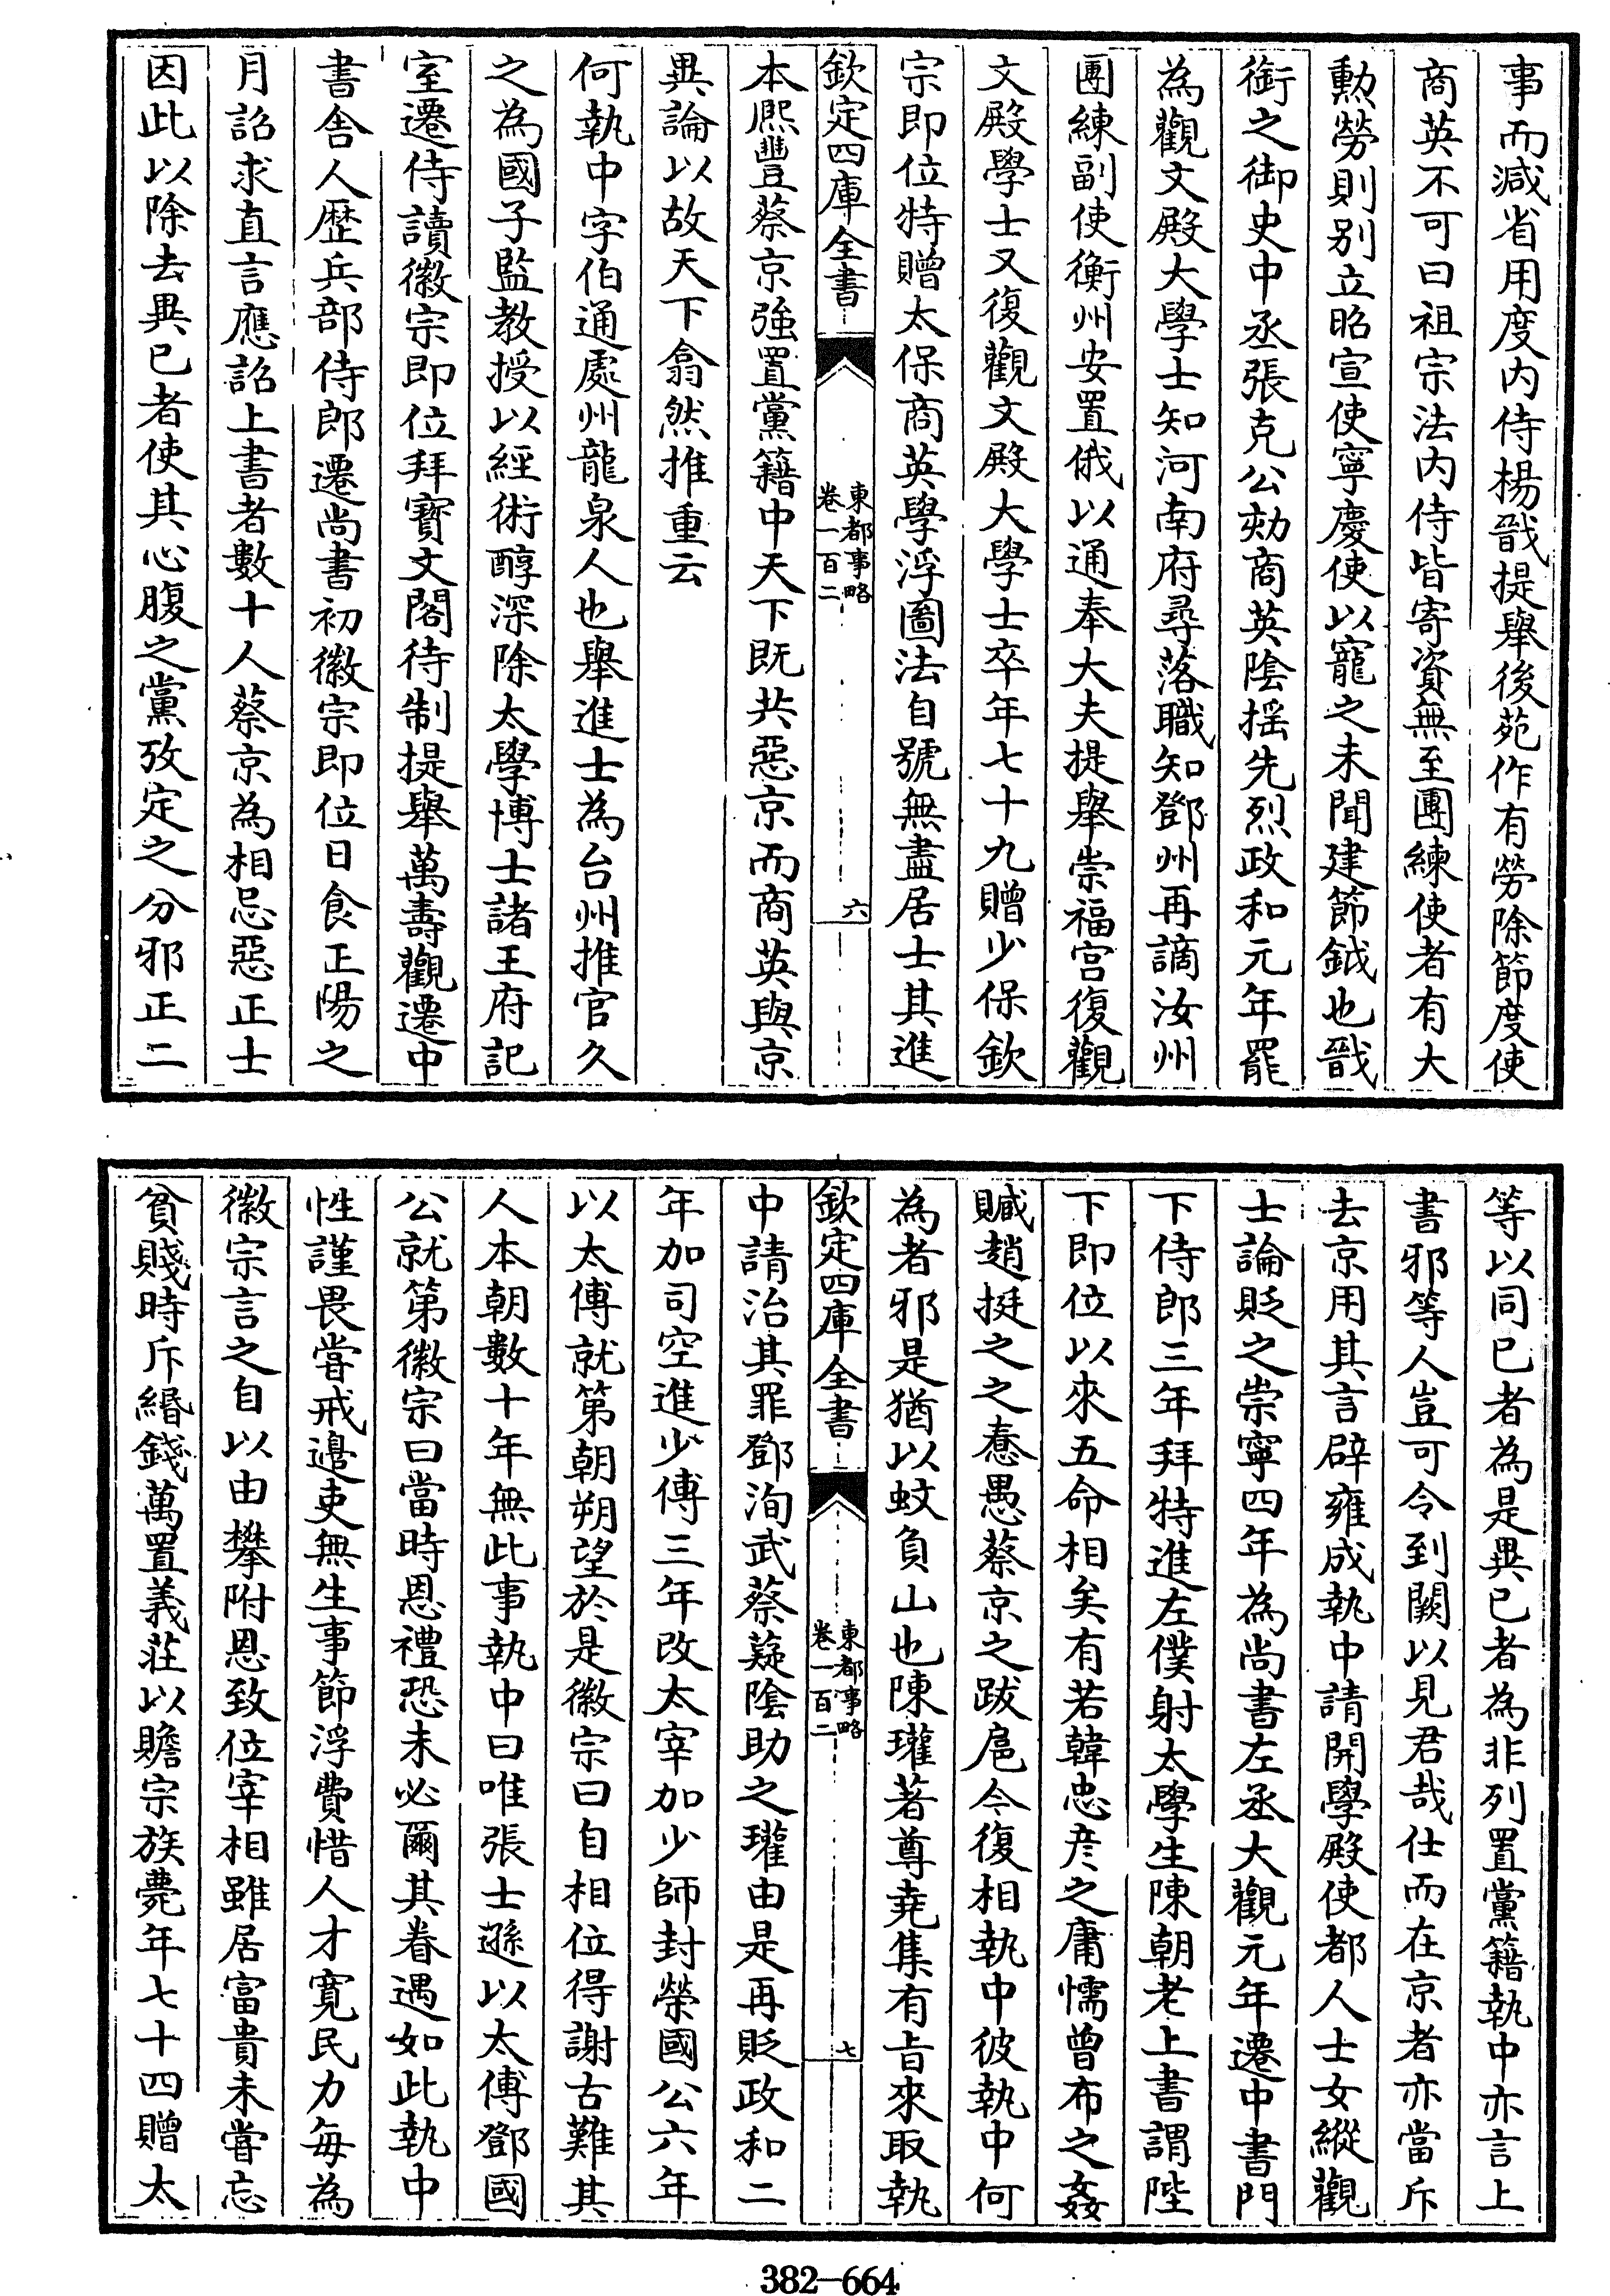 事而減省用度内侍楊戩提舉後苑作有勞除節度使
商英不可曰祖宗法内侍皆寄資無至團練使者有大
勳勞則别立昭宣使寧慶使以寵之未聞建節鉞也戩
銜之御史中丞張克公劾商英陰揺先烈政和元年罷
為觀文殿大學士知河南府尋落職知鄧州再謫汝州
團練副使衡州安置俄以通奉大夫提舉崇福宫復觀
文殿學士又復觀文殿大學士卒年七十九贈少保欽
宗即位特贈太保商英學浮圖法自號無盡居士其進
欽定四庫全書
東都事略
卷一百二
六
本熈豐蔡京強置黨籍中天下既共惡京而商英與京
異論以故天下翕然推重云
何執中字伯通處州龍泉人也舉進士為台州推官久
之為國子監教授以經術醇深除太學博士諸王府記
室遷侍讀徽宗即位拜寶文閣待制提舉萬壽觀遷中
書舎人歴兵部侍郎遷尚書初徽宗即位日食正陽之
月詔求直言應詔上書者數十人蔡京為相忌惡正士
因此以除去異已者使其心腹之黨攷定之分邪正二
等以同已者為是異已者為非列置黨籍執中亦言上
書邪等人豈可令到闕以見君哉仕而在京者亦當斥
去京用其言辟雍成執中請開學殿使都人士女縱觀
士論貶之崇寧四年為尚書左丞大觀元年遷中書門
下侍郎三年拜特進左僕射太學生陳朝老上書謂陛
下即位以來五命相矣有若韓忠彦之庸懦曾布之姦
贓趙挺之之惷愚蔡京之跋扈今復相執中彼執中何
為者邪是猶以蚊負山也陳瓘著尊堯集有旨來取執
欽定四庫全書
東都事略
卷一百二
七
中請治其罪鄧洵武蔡薿陰助之瓘由是再貶政和二
年加司空進少傅三年改太宰加少師封榮國公六年
以太傅就第朝朔望於是徽宗曰自相位得謝古難其
人本朝數十年無此事執中曰唯張士遜以太傅鄧國
公就第徽宗曰當時恩禮恐未必爾其眷遇如此執中
性謹畏嘗戒邉吏無生事節浮費惜人才寛民力毎為
徽宗言之自以由攀附恩致位宰相雖居富貴未嘗忘
貧賤時斥緡錢萬置義莊以贍宗族薨年七十四贈太
382-664